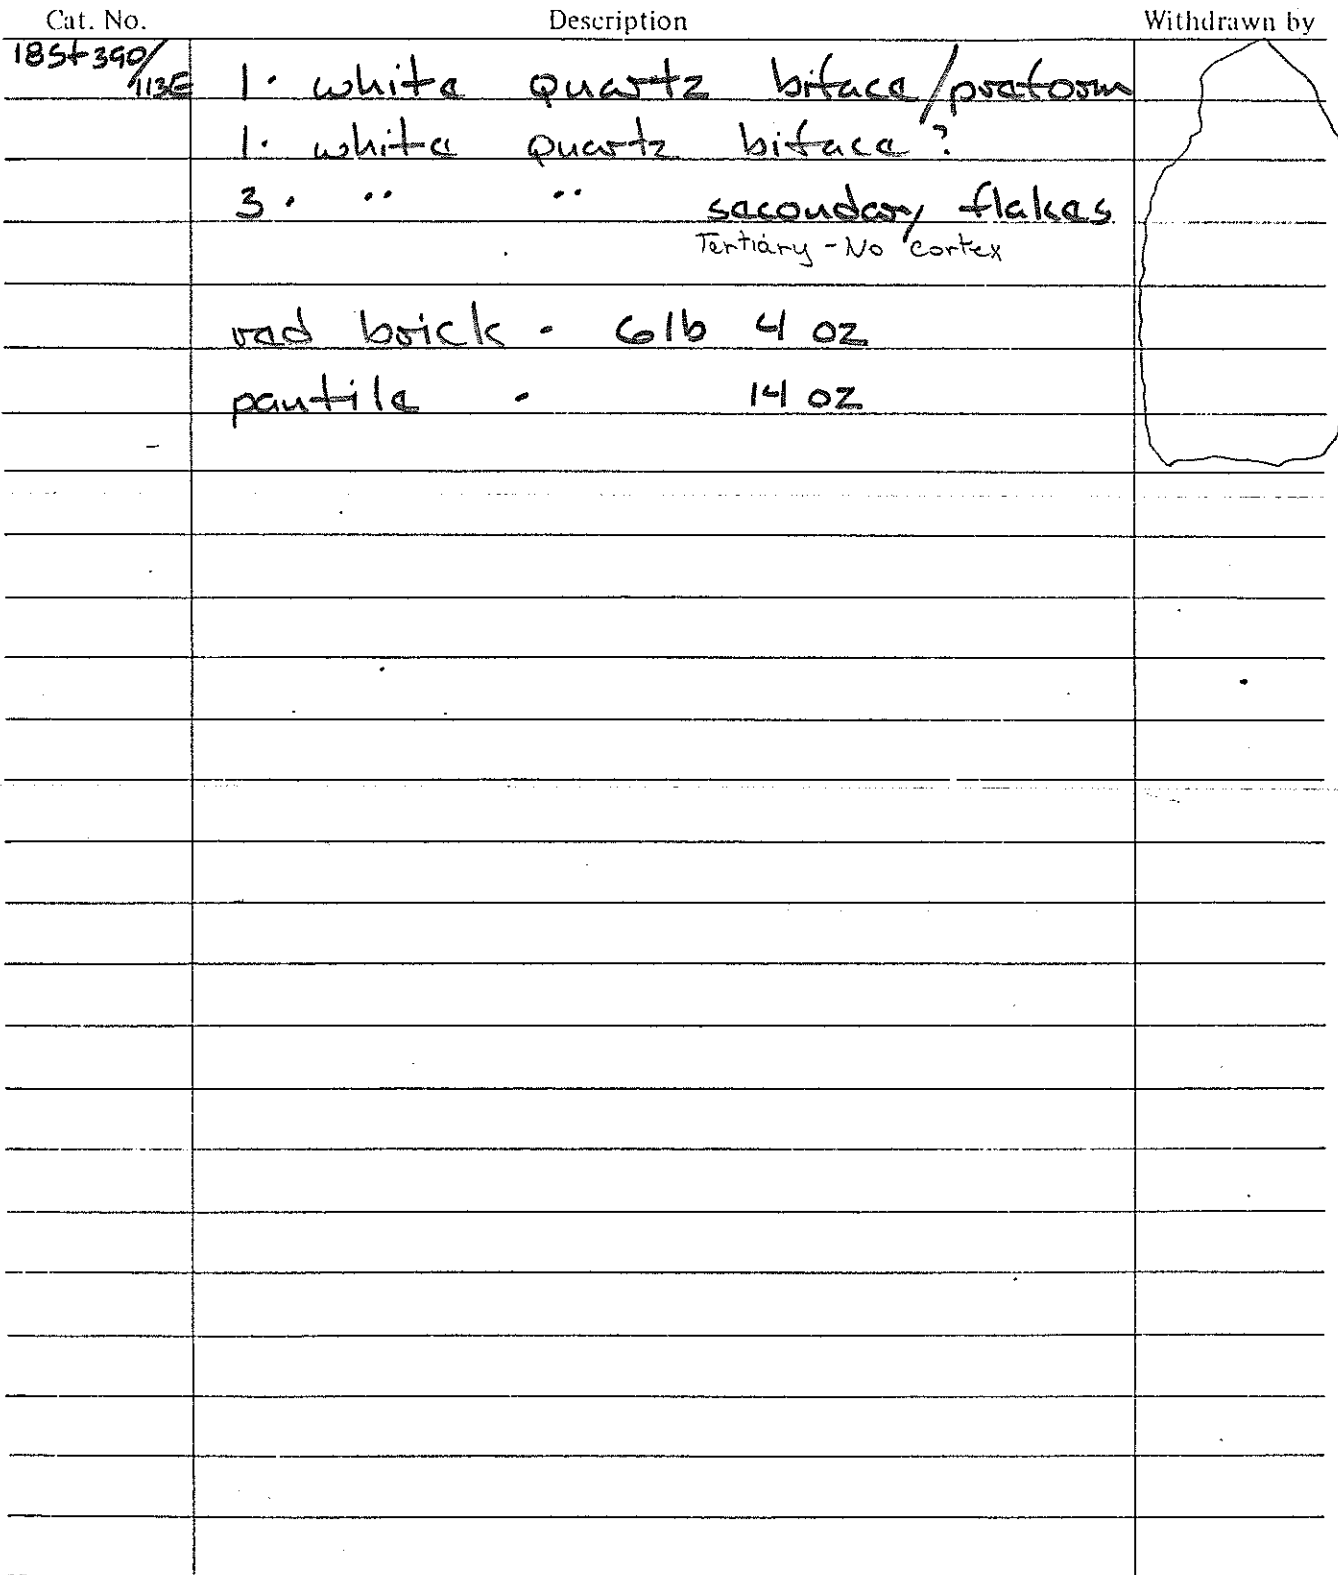 Cat. No. Description Withdrawn by
18St390/113E 1. white quartz biface/preform
1. white quartz biface?
3. " " secondary flakes
Tertiary - No cortex
red brick - 6lb 4 oz
pantile - 14 oz